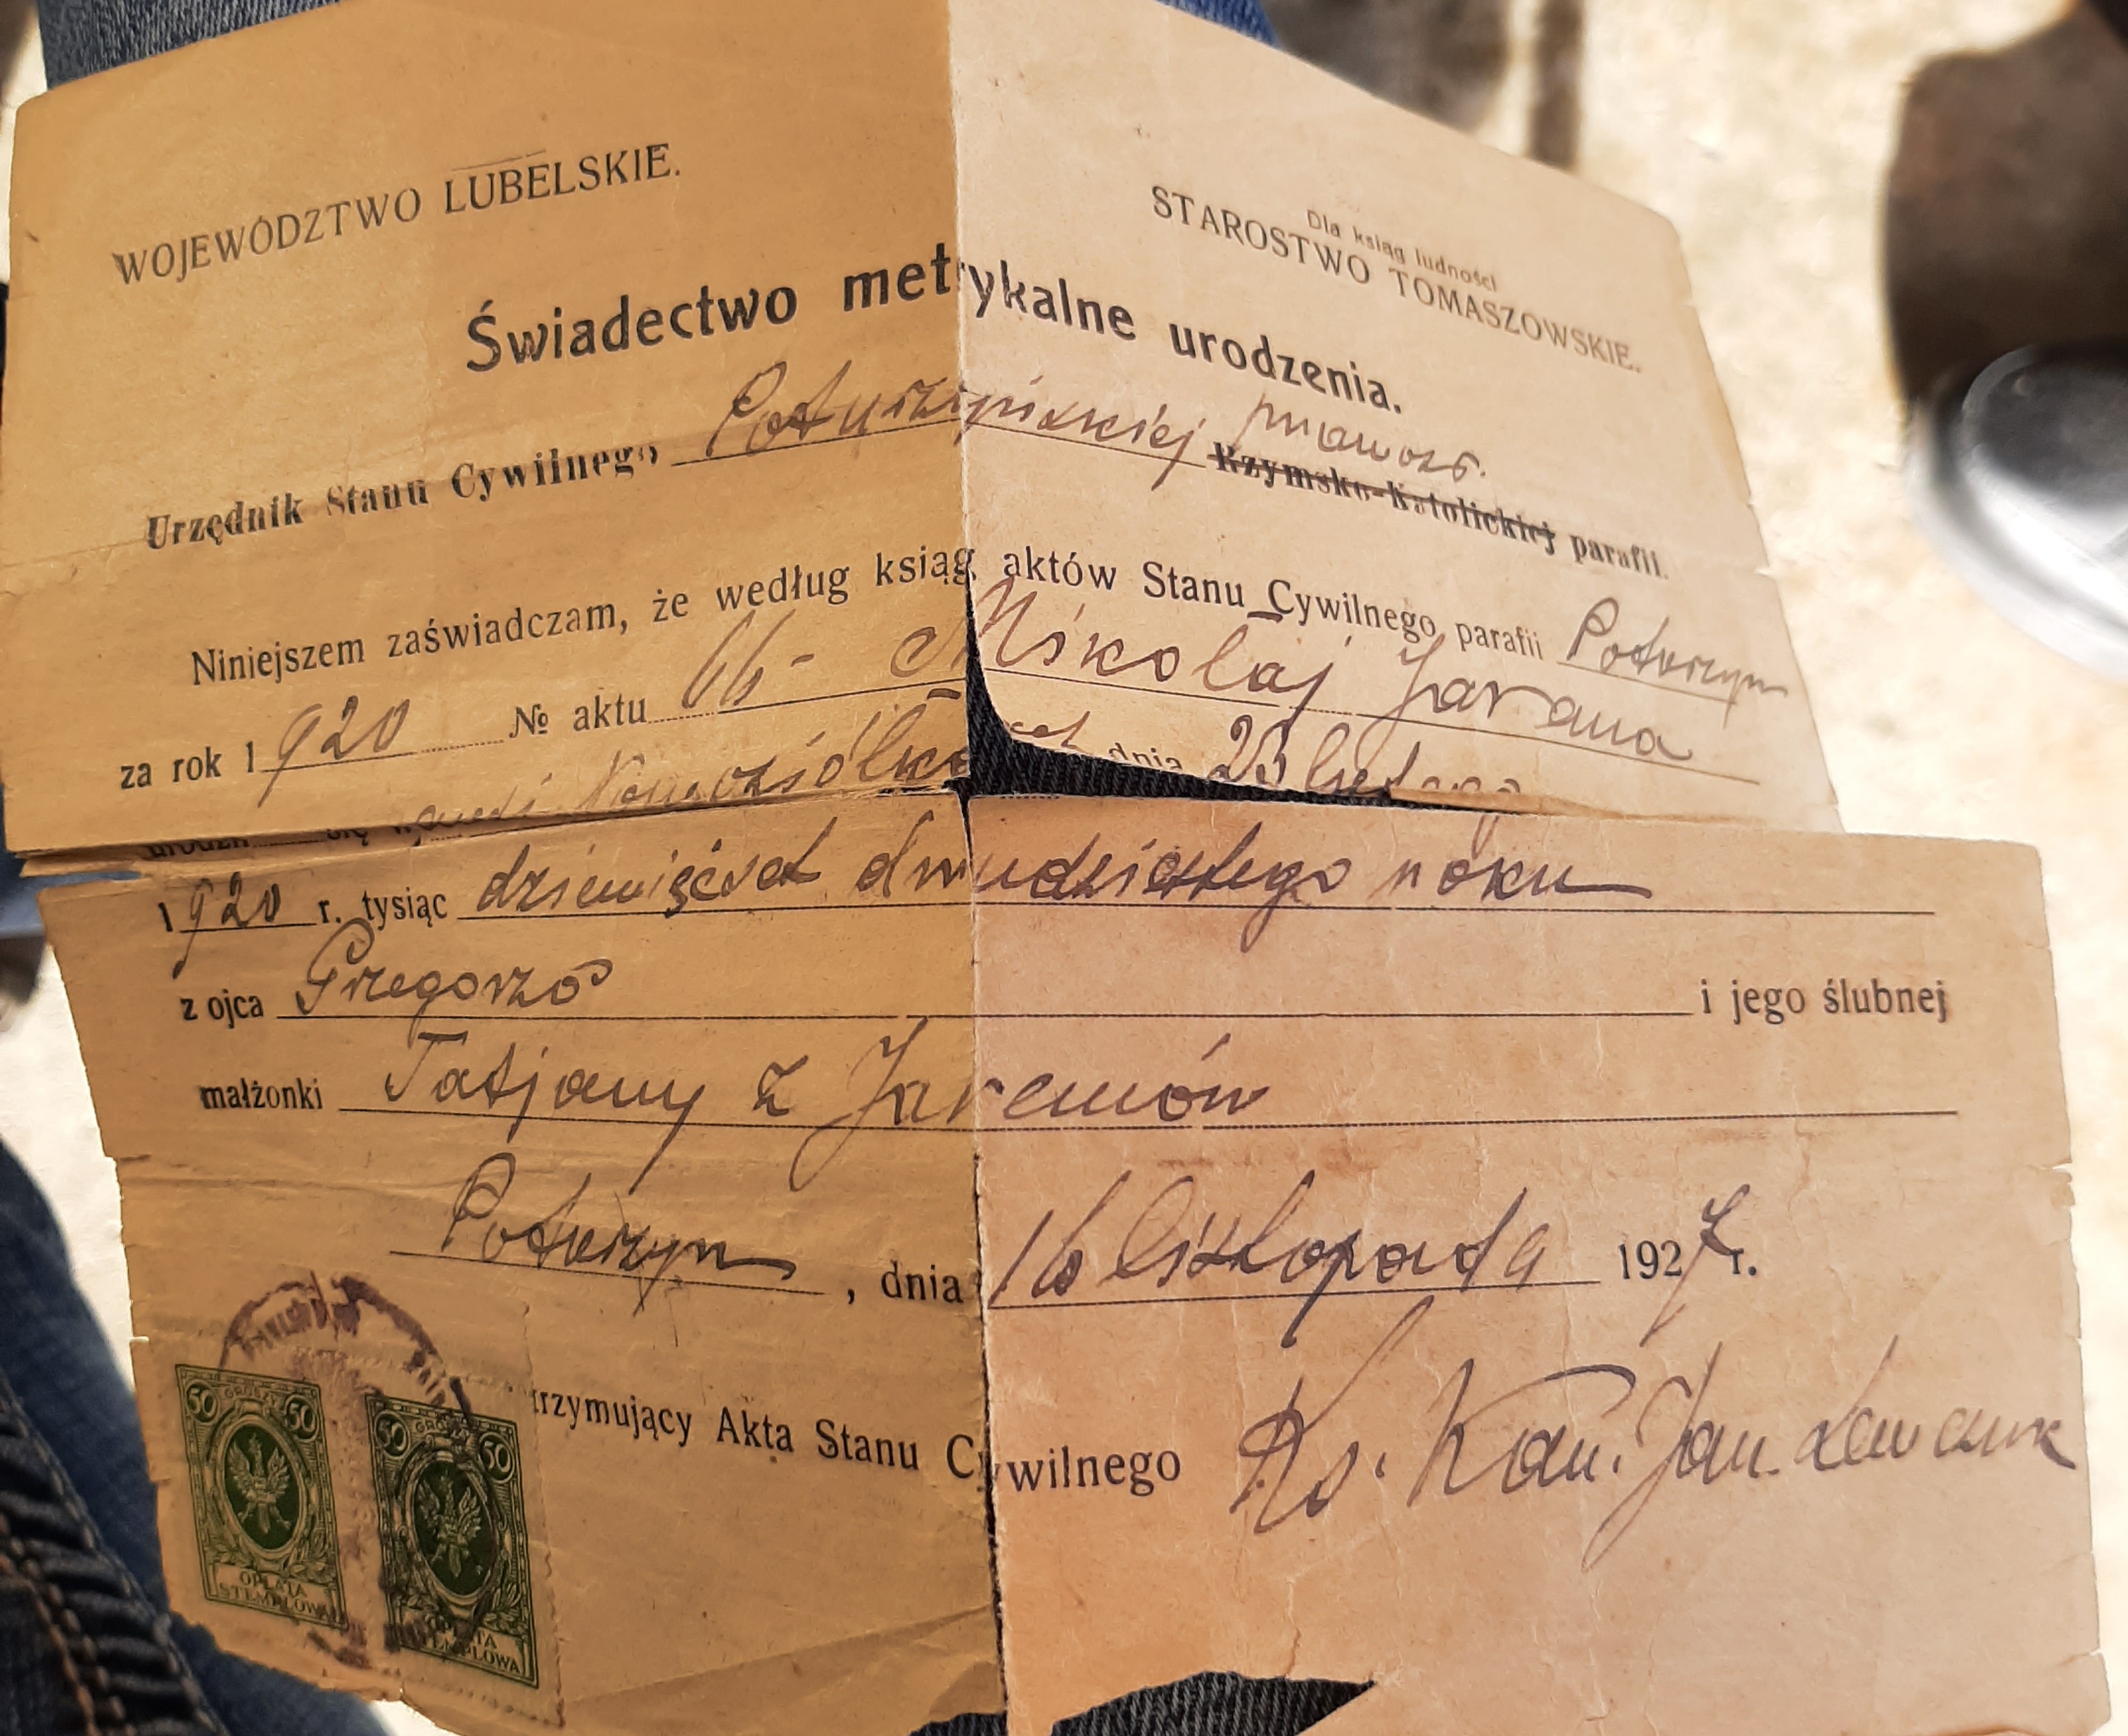 WOJEWÓDZTWO LUBELSKIE.
Dla ksiąg ludności
STAROSTWO TOMASZOWSKIE.
Świadectwo metrykalne urodzenia.
prawosł.
Urzędnik Stanu Cywilnego Poturzyńskiej Rzymsko-Katolickiej parafii.
Niniejszem zaświadczam, że według ksiąg aktów Stanu Cywilnego parafii Poturzyn
za rok 1920 № aktu 16- Mikołaj Jarema
urodził się dnia 23 lutego
1920 r. tysiąc dziewięćset dwudziestego roku
z ojca Grzegorza i jego ślubnej
małżonki Tatjany z Jaremów
Poturzyn, dnia 16 listopada 1927 r.
trzymujący Akta Stanu Cywilnego Ks. Kan. Jan
50 GROSZY 50
50 GROSZY 50
OPŁATA
STEMPLOWA
OPŁATA
STEMPLOWA